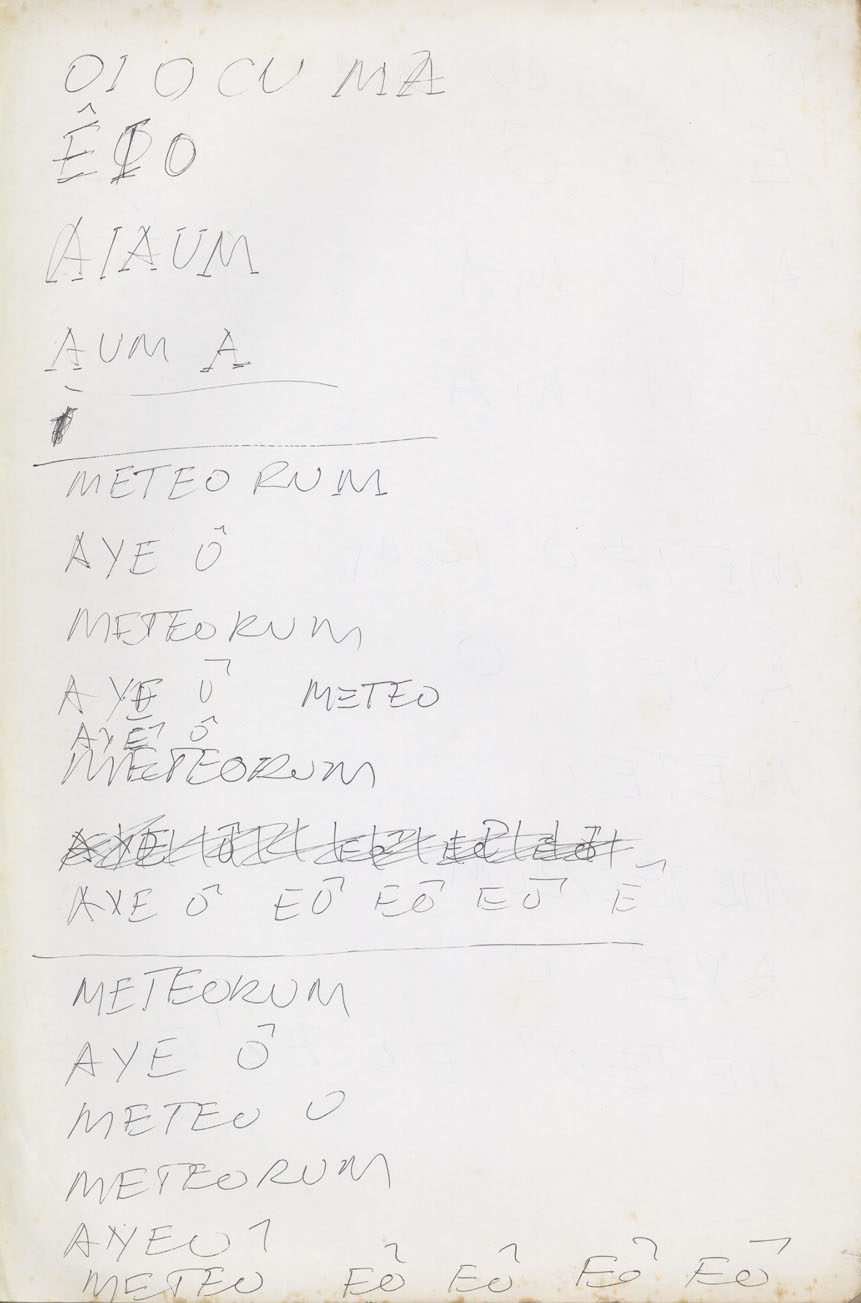 OI O CU MA
Ê O
AIAUM
AUM A
METEORUM
AYE Ô
METEORUM
AYE Ô METEO
AYÊ Ô
METEORUM
AYE Ô EÔ EÔ EÔ Ê
METEORUM
AYE Ô
METEO O
METEORUM
AYEÔ
METEO EÔ EÔ EÔ EÔ